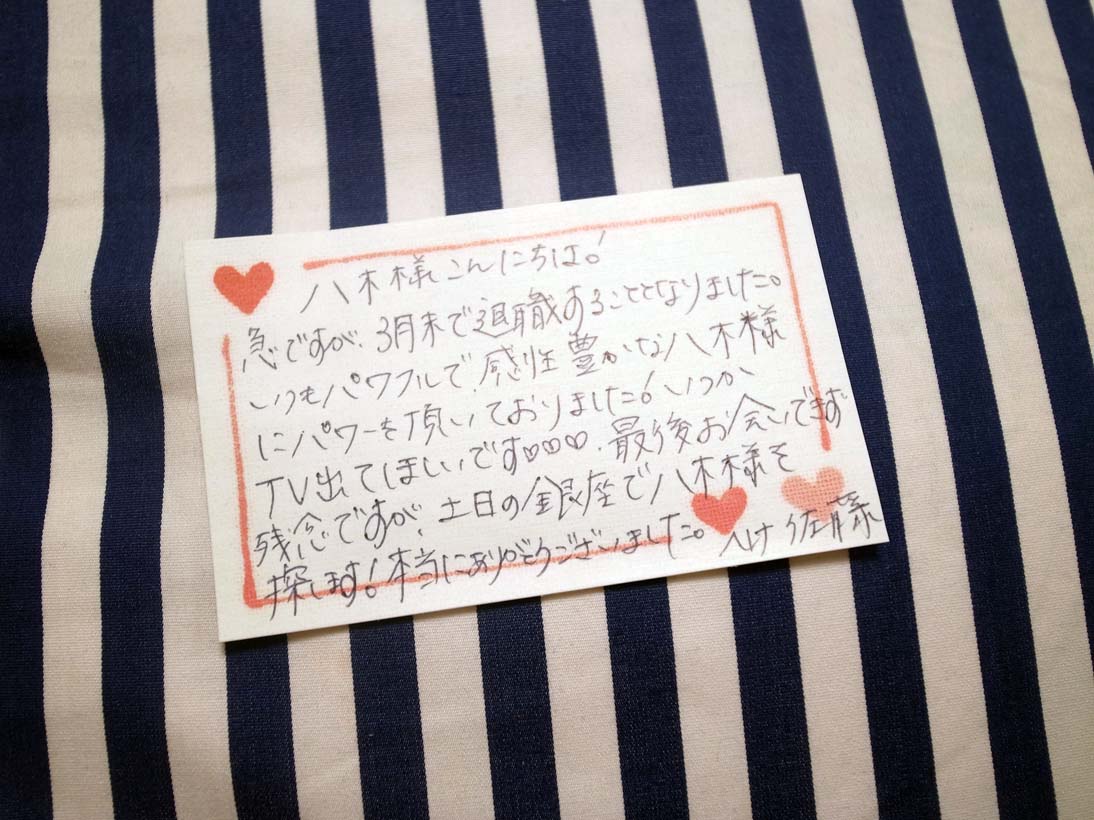 八木様こんにちは!
急ですが、3月末で退職することとなりました。
いつもパワフルで、感性豊かな八木様
にパワーを頂いておりました!いつか
TV出てほしいです♡♡♡.最後お会いできず
残念ですが、土日の銀座で八木様を
探します!本当にありがとうございました。 佐藤